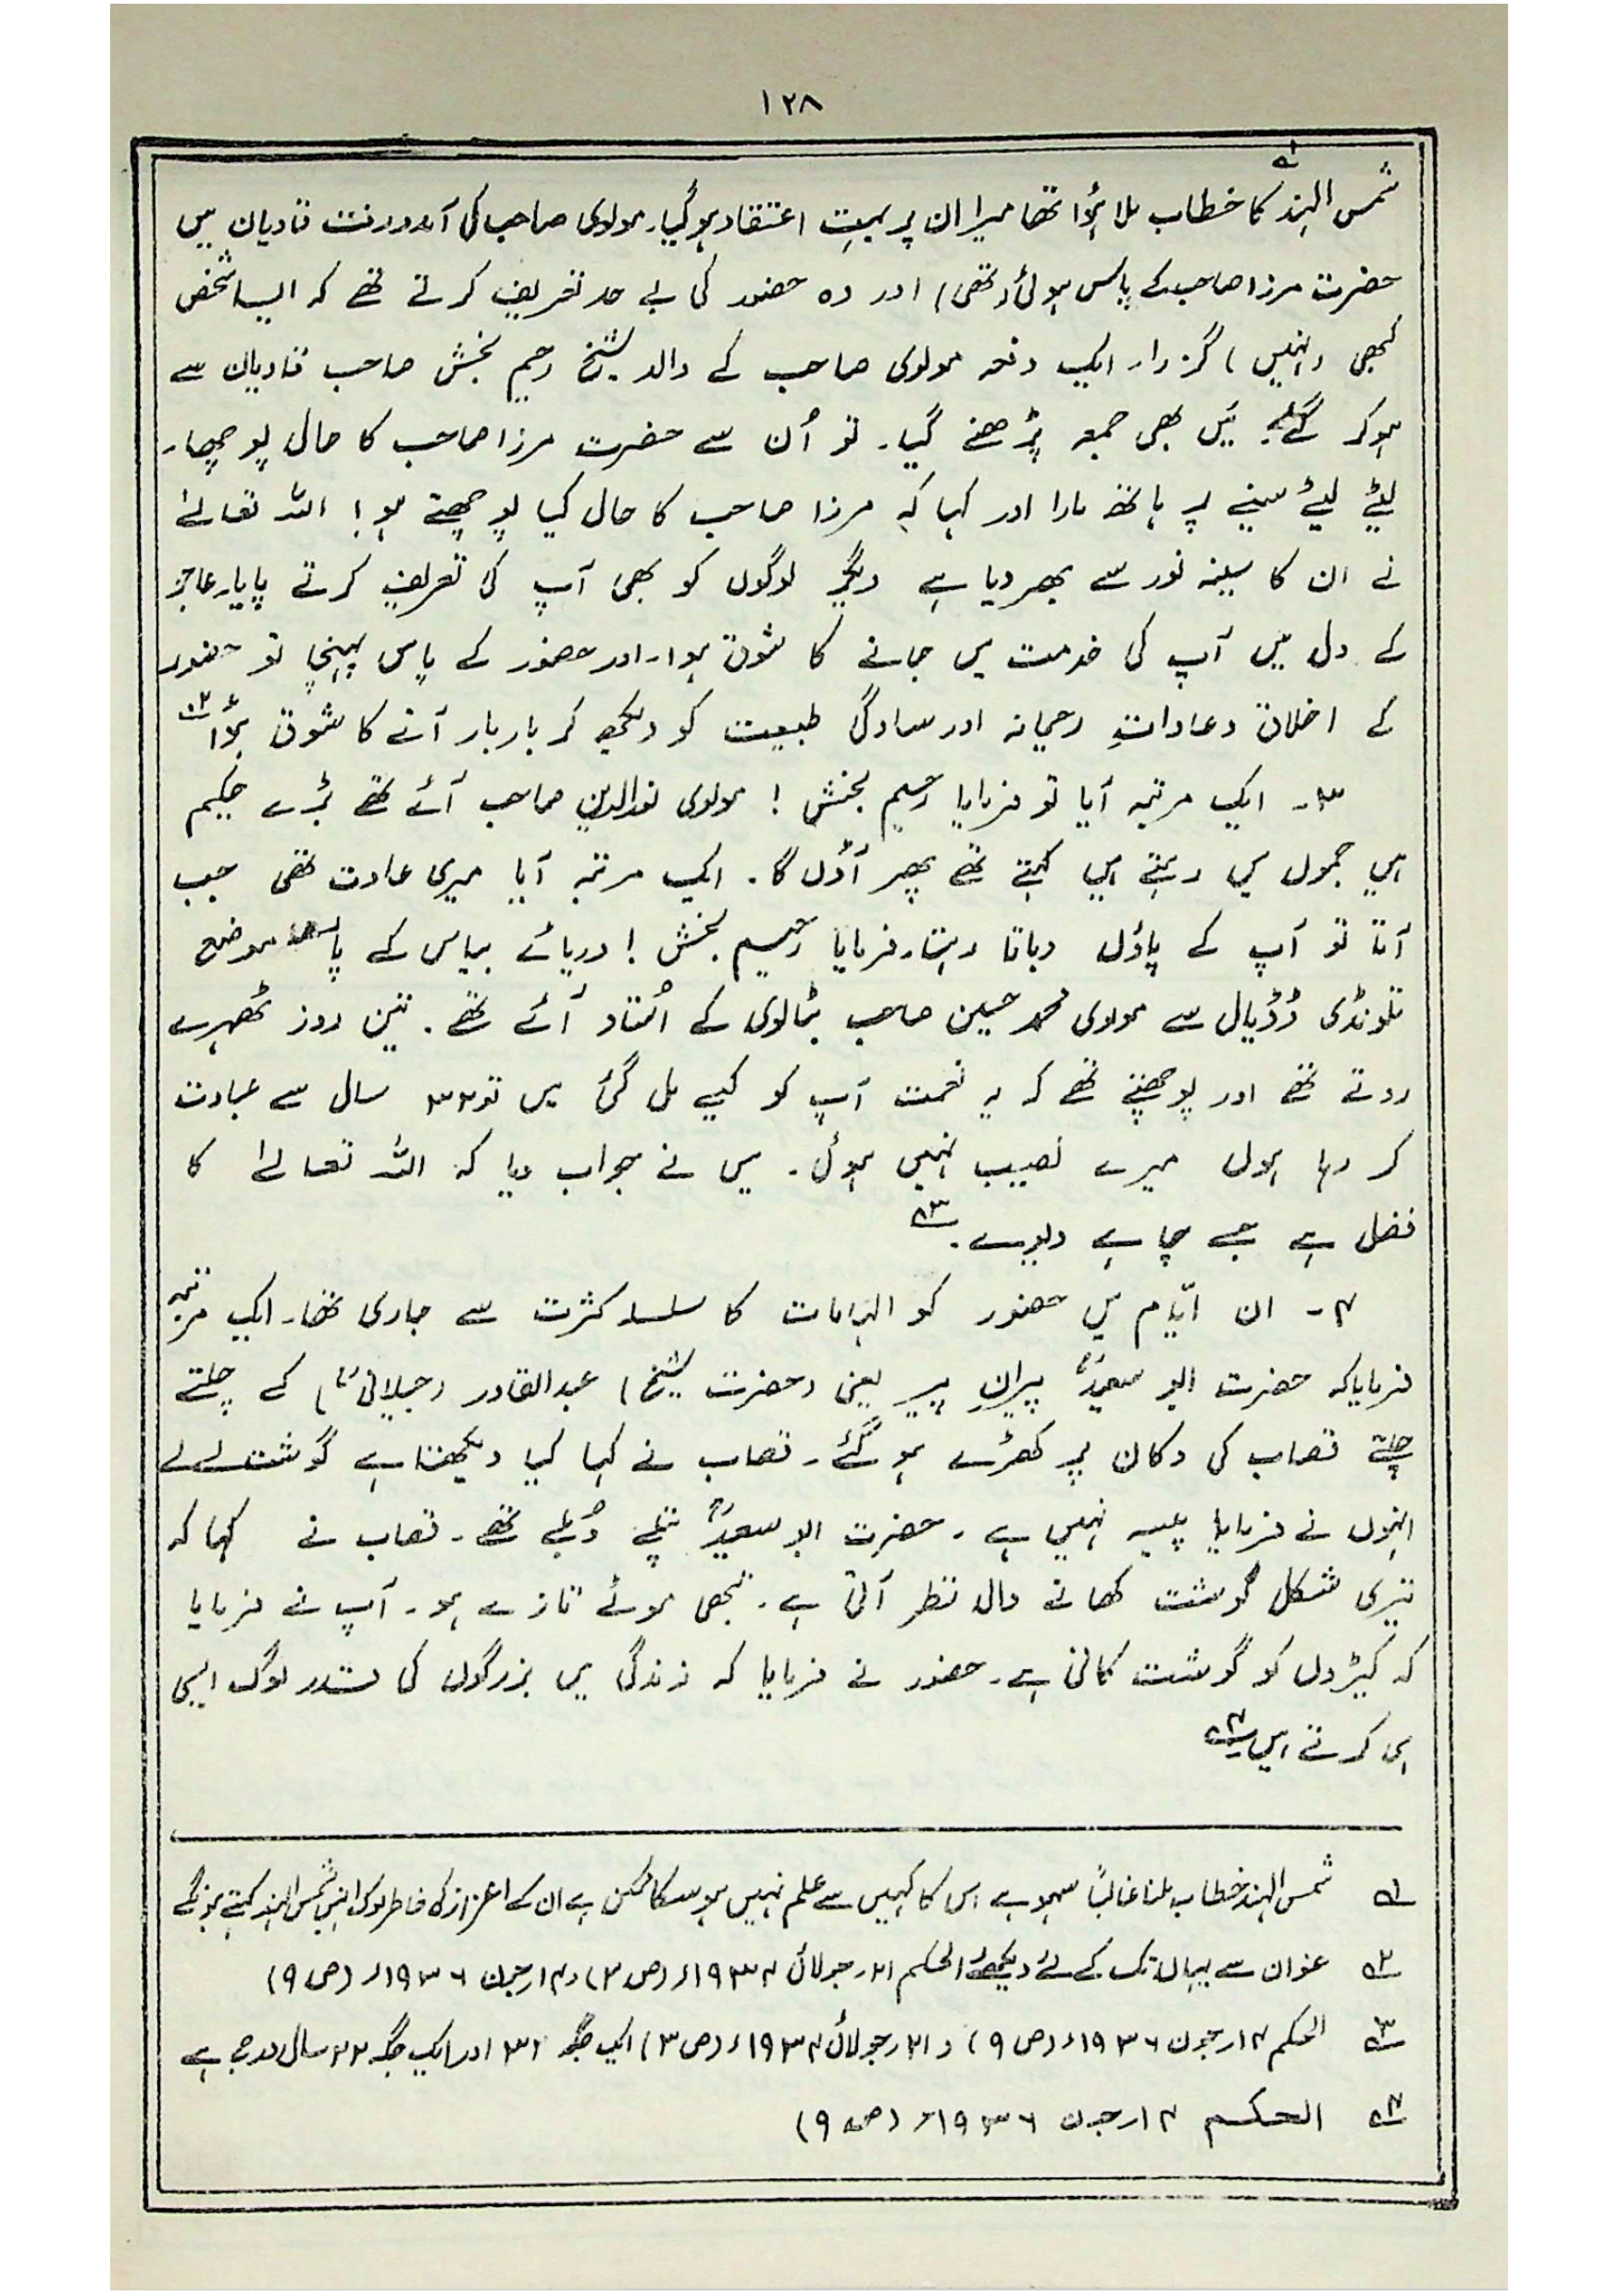 ۱۲۸
شمس الہند ۱؎ کا خطاب ملا ہؤا تھا میرا ان پر بہت اعتقاد ہو گیا۔ مولوی صاحب کی آمد و رفت قادیان میں
حضرت مرزا صاحب کے پاس ہوئی (تھی) اور وہ حضور کی بے حد تعریف کرتے تھے کہ ایسا شخص
کبھی (نہیں) گزرا۔ ایک دفعہ مولوی صاحب کے والد شیخ رحیم بخش صاحب قادیان سے
ہو کر گئے۔ میں بھی جمعہ پڑھنے گیا۔ تو اُن سے حضرت مرزا صاحب کا حال پوچھا۔
لیٹے لیٹے سینے پر ہاتھ مارا اور کہا کہ مرزا صاحب کا حال کیا پوچھتے ہو! اللہ تعالےٰ
نے ان کا سینہ نور سے بھر دیا ہے دیگر لوگوں کو بھی آپ کی تعریف کرتے پایا۔ عاجز
کے دل میں آپ کی خدمت میں جانے کا شوق ہوا۔ اور حضور کے پاس پہنچا تو حضور
کے اخلاق و عاداتِ رحیمانہ اور سادگی طبیعت کو دیکھ کر بار بار آنے کا شوق ہؤا ۲؎
۳۔ ایک مرتبہ آیا تو فرمایا رحیم بخش! مولوی نورالدین صاحب آئے تھے بڑے حکیم
ہیں جموں میں رہتے ہیں کہتے تھے پھر آؤں گا۔ ایک مرتبہ آیا میری عادت تھی جب
آتا تو آپ کے پاؤں دباتا رہتا۔ فرمایا رحیم بخش! دریائے بیاس کے پاس موضع
تلونڈی ڈڈیال سے مولوی محمد حسین صاحب بٹالوی کے اُستاد آئے تھے۔ تین روز ٹھہرے
روتے تھے اور پوچھتے تھے کہ یہ نعمت آپ کو کیسے مل گئی میں تو ۳۲ سال سے عبادت
کر رہا ہوں میرے نصیب نہیں ہوئی۔ میں نے جواب دیا کہ اللہ تعالےٰ کا
فضل ہے جسے چاہے دیوے۔ ۳؎
۴۔ ان ایّام میں حضور کو الہامات کا سلسلہ کثرت سے جاری تھا۔ ایک مرتبہ
فرمایا کہ حضرت ابو سعیدؒ پیرانِ پیر یعنی (حضرت شیخ) عبدالقادر (جیلانیؒ) کے چلتے
چلتے قصاب کی دکان پر کھڑے ہو گئے۔ قصاب نے کہا کیا دیکھتا ہے گوشت لے لے
انہوں نے فرمایا پیسہ نہیں ہے۔ حضرت ابو سعیدؒ پتلے دُبلے تھے۔ قصاب نے کہا کہ
تیری شکل گوشت کھانے والی نظر آتی ہے۔ تبھی موٹے تازے ہو۔ آپ نے فرمایا
کہ کیڑوں کو گوشت کافی ہے۔ حضور نے فرمایا کہ زندگی میں بزرگوں کی قدر لوگ ایسی
ہی کرتے ہیں ۴؎
۱؎ شمس الہند خطاب ملنا غالباً سہو ہے اس کا کہیں سے علم نہیں ہو سکا ممکن ہے ان کے اعزاز کی خاطر لوگ انہیں شمس الہند کہتے ہوں گے
۲؎ عنوان سے یہاں تک کے لئے دیکھئے الحکم ۲۱۔ جولائی ۱۹۳۴ء (ص ۳) و ۱۴ر جون ۱۹۳۶ء (ص ۹)
۳؎ الحکم ۱۴ر جون ۱۹۳۶ء (ص ۹) و ۲۱ر جولائی ۱۹۳۴ء (ص ۳) ایک جگہ ۳۲ اور ایک جگہ ۲۲ سال درج ہے
۴؎ الحکم ۱۴ر جون ۱۹۳۶ء (ص ۹)